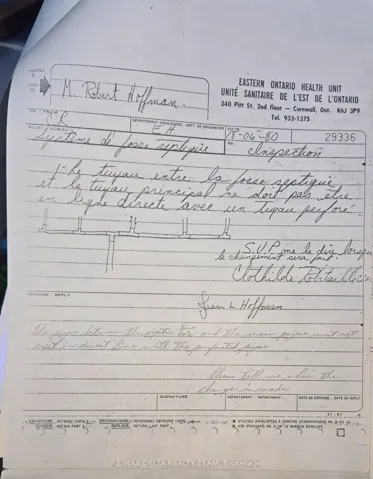 M. Robert Hoffman.
EASTERN ONTARIO HEALTH UNIT
UNITÉ SANITAIRE DE L'EST DE L'ONTARIO
340 Pitt St. 2nd floor — Cornwall, Ont. K6J 3P9
Tel. 933-1375
DATE
18-06-80
29336
Système de fosse septique
Inspection
1- Le tuyau entre la fosse septique
et le tuyau principal ne doit pas être
en ligne directe avec un tuyau perforé.
S.V.P. me le dire lorsque
le changement sera fait.
Clothilde Robitaille
Jean L Hoffman
RÉPONSE - REPLY
The pipe between the septic tank and the main pipe must not
exist in direct line with the perforated pipe
Please tell me when the
change is made
SIGNATURE
DEPARTEMENT - DEPARTMENT
DATE DE RÉPONSE - DATE OF REPLY
RE/MAX DELTA REALTY TEAM, Brokerage